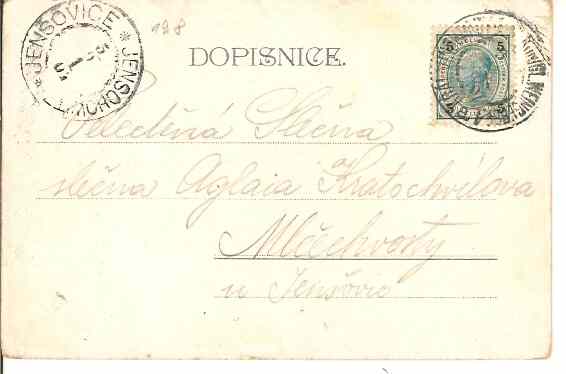 198
JENSOVICE * JENSCHOWITZ *
DOPISNICE.
5 5
Velectěná Slečna
slečna Aglaia Kratochvílova
Mlčechvosty
u Jenšovic